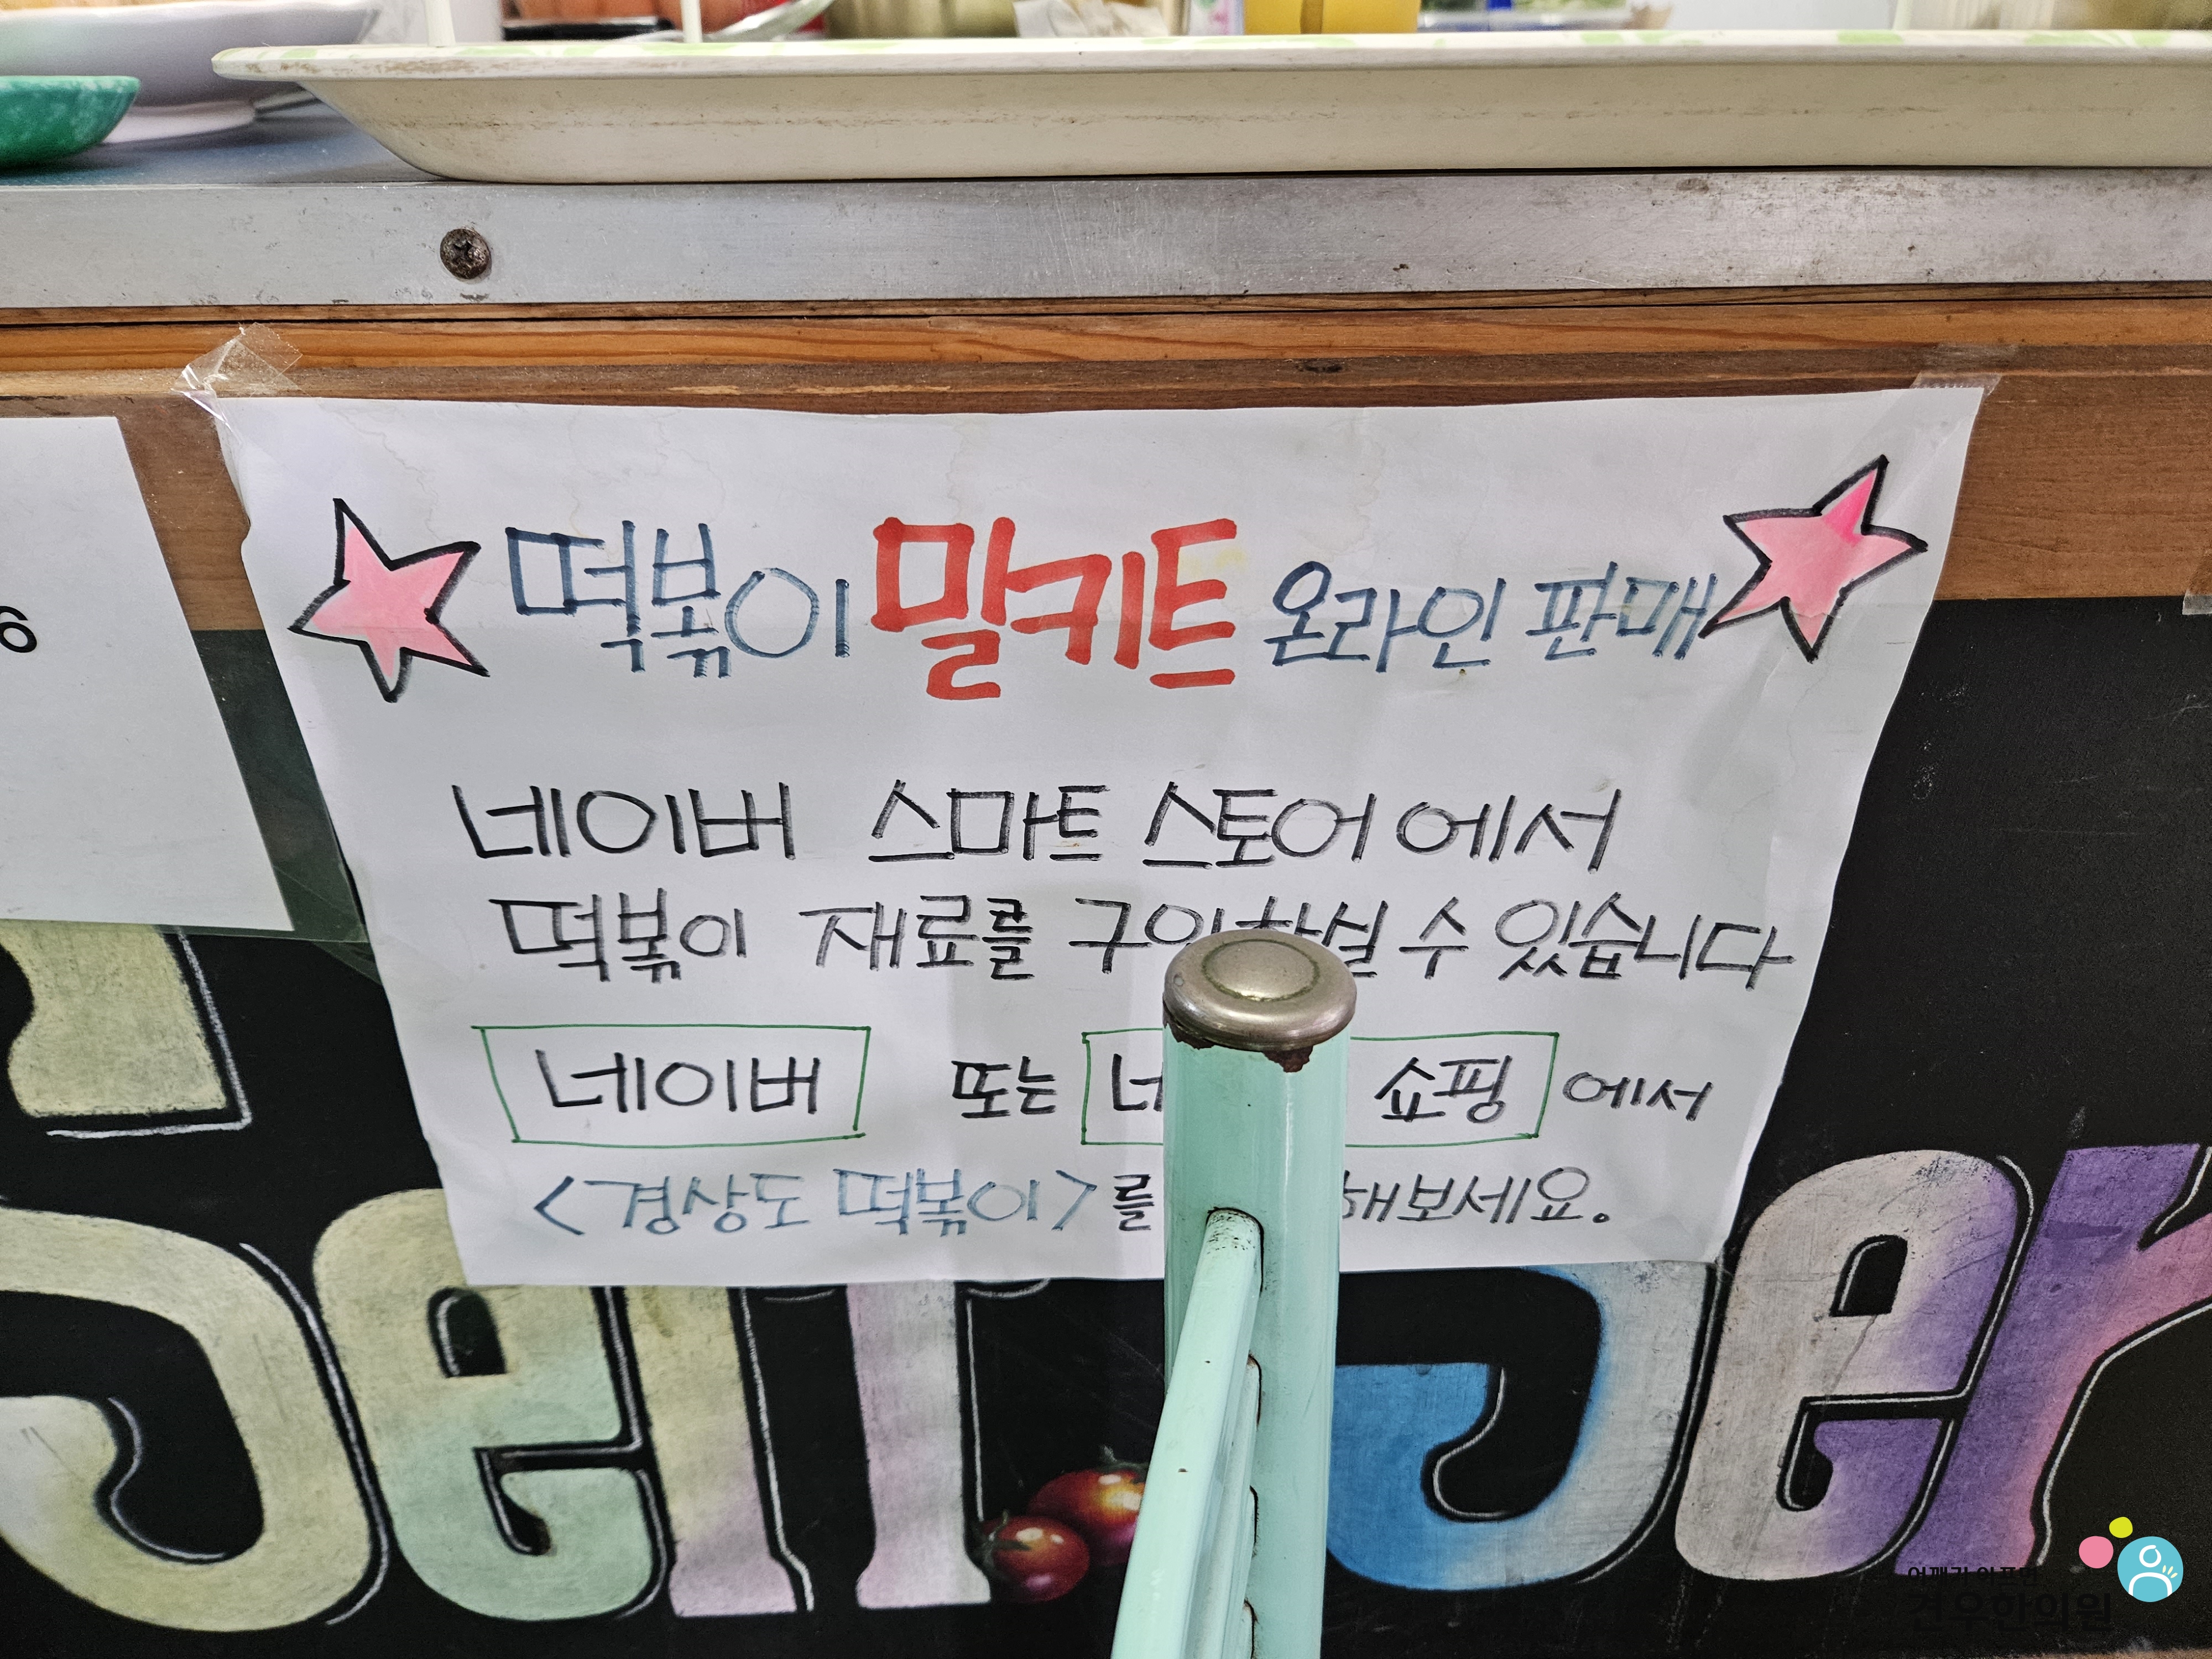 6
떡볶이 밀키트 온라인 판매
네이버 스마트 스토어에서
떡볶이 재료를 구입하실 수 있습니다
네이버 또는 쇼핑 에서
<경상도 떡볶이>를 해보세요.
Self Ser
건우한의원